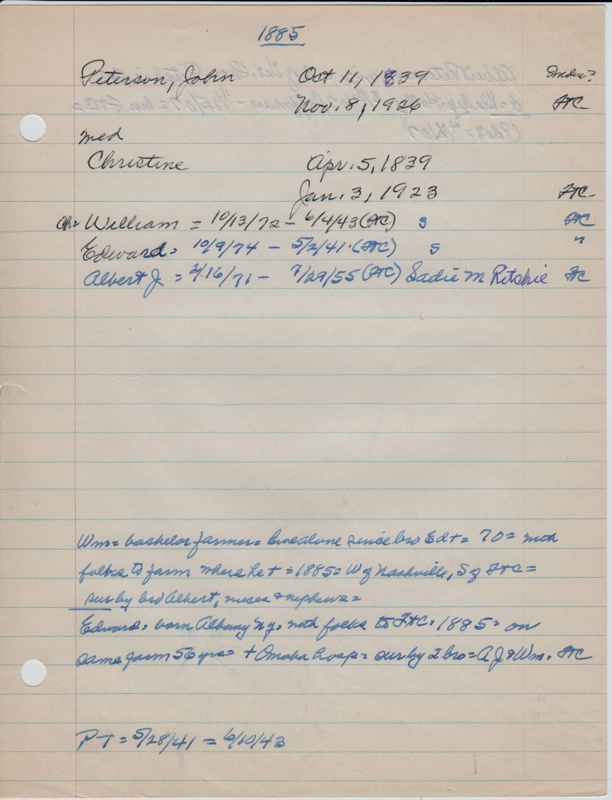 1885
Peterson, John Oct 11, 1839 Index?
Nov. 8, 1926 FtC
med
Christine Apr. 5, 1839
Jan. 3, 1923 FtC
Ch= William = 10/13/72 - 6/4/43 (FtC) s FtC
Edward = 10/9/74 - 5/2/41 (FtC) s "
Albert J. = 2/16/71 - 7/29/55 (FtC) Sadie M Ritchie FtC
Wm = bachelor farmer = lived alone since bro Ed + = 70 = with
folks to farm where he + = 1885 = W of Nashville, S of FtC =
sur by bro Albert, nieces & nephews =
Edward = born Albany NY = with folks to FtC = 1885 = on
same farm 56 yrs = + Omaha hosp = sur by 2 bro = A J & Wm = FtC
PT = 5/28/41 = 6/10/43